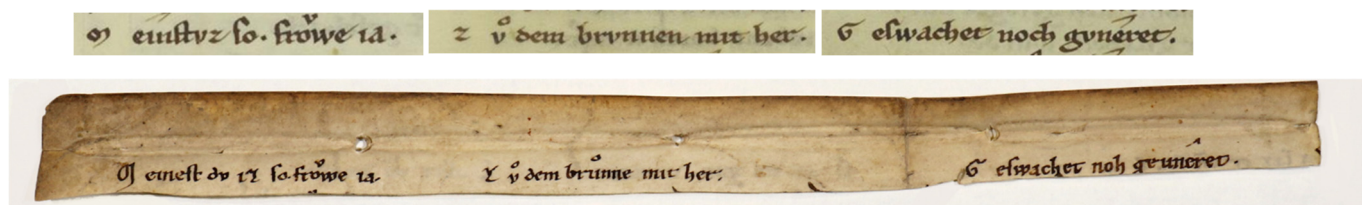 M einstvz so. froͮwe ia. Z vͦ dem brvnnen mit her. G eswachet noch gvnêret.
M einest dv iz so froͮwe ia. Z vͦ dem bruͦnne mit her: G eswachet noh geunêret.